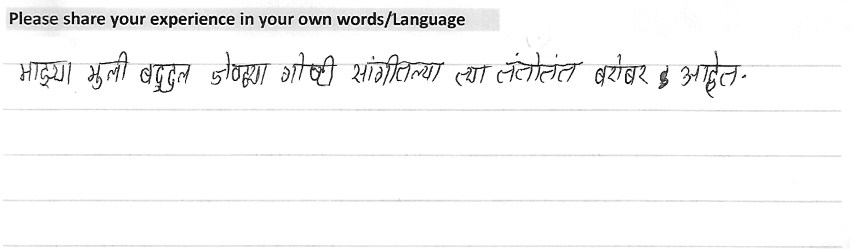 Please share your experience in your own words/Language
माझ्या मुली बद्दल जेवढ्या गोष्टी सांगीतल्या त्या तंतोतंत बरोबर आहेत.